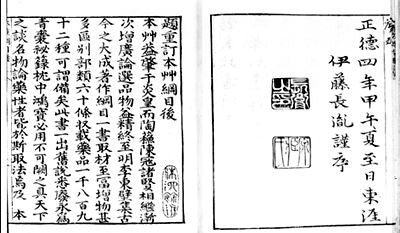 正德四年甲午夏至日東涯
伊藤長胤謹序
題重訂本艸綱目後
本艸蓋肇于炎皇而陶蘇陳寇諸賢相繼漸
次增廣論選品物益精終至明李東璧集古
今之大成著作綱目一書取材至富增物甚
多區別部類六十條枚載藥品一千八百九
十二種可謂備矣此書一出舊說悉廢永爲
者秘籙枕中鴻寶必用不可闕之具天下
之談名物論藥性者悉於斯取法焉及 本